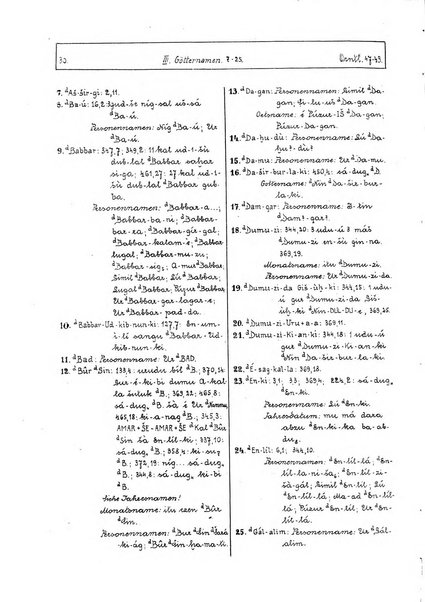 30.
III. Götternamen. 7-25.
Orntl. 47-49.
7. ᵈAš-šir-gi: 2,11.
8. ᵈBa-ú: 16,2.3; ud-še níg-sal uš-sá
ᵈBa-ú.
Personennamen: Níg ᵈBa-ú; Ur
ᵈBa-ú.
9. ᵈBabbar: 347,7; 349,2: 11. kal ud-1-
šù dub-lal ᵈBabbar sahar
si-ga; 461,27: 27. kal ud-1-
šù dub-lal ᵈBabbar gub-
ba.
Personennamen: ᵈBabbar-a...;
ᵈBabbar-ba-ni; ᵈBabbar-
bar-ra; ᵈBabbar-gír-gal;
ᵈBabbar-kalam-e; ᵈBabbar
lugal; ᵈBabbar-mu-zu;
ᵈBabbar-sig; A-mur ᵈBabbar;
Gimil ᵈBabbar; Galu ᵈBabbar;
Lugal ᵈBabbar; Púzur ᵈBabbar;
Ur ᵈBabbar-gar-lagar-e;
Ur ᵈBabbar-pad-da.
10. ᵈBabbar-Ud-kib-nun-ki: 127,7: En-um-
i-lí sangu ᵈBabbar-Ud-
kib-nun-ki.
11. ᵈBad: Personenname: Ur ᵈBAD.
12. ᵈBûr ᵈSin: 133,4: uruda bil ᵈ0,14:
Sur-é-ki-bi dumu A-kal-
la šuluk ᵈB.; 369,22; 465,8:
sá-dug₄ ᵈB.; é ᵈB. é
465,18: ki-a-nag ᵈB.; 345,3:
AMAR+ŠE-AMAR+ŠE ᵈKal ᵈBûr
ᵈSin šà ᵈEn-líl-ki; 337,10:
sá-dug₄ ᵈB.; 358,4: ki-sum
ᵈB.; 372,19: níg... sá-dug₄
ᵈB.; 369,18: sá-dug₄ ᵈEn-ki
ᵈB.
Siehe Jahresnamen!
Monatsname: itu ezen ᵈBûr
ᵈSin.
Personennamen: ᵈBur ᵈSin
ki-ág; ᵈBûr ᵈSin ha-ma-ti.
13. ᵈDa-gan: Personennamen: Gimil ᵈDa-
gan; I-lu-uš ᵈDa-gan;
Púzur ᵈDa-gan.
Ortsname: é Púzur-Iš ᵈDa-gan,
Púzur-Da-gan.
14. ᵈDa-hu-dù: Personenname: Ur ᵈDa-
hu?-dù?
15. ᵈDa-mu: Personenname: Ur ᵈDa-mu.
16. ᵈDa-šir-bur-la-ki: 450,4: sá-dug₄ ᵈD.
Göttername: ᵈNin ᵈDa-šir-bur-
la-ki.
17. ᵈDam-gar: Personenname: I-tin
ᵈDam?-gar?.
18. ᵈDumu-zi-da: 344,20: 3 udu-ú 3 máš
ᵈDumu-zi en-šù gin-na.
369,19.
Monatsname: itu ᵈDumu-zi.
Personenname: Ur ᵈDumu-zi-da.
19. ᵈDumu-zi-da Giš-úh-ki: 344,15: 1 udu-
ú gur ᵈDumu-zi-da Giš-
úh-ki ᵈNin-DUL-DU-e; 369,15.
20. ᵈDumu-zi-Uru+a-a: 369,11.
21. ᵈDumu-zi-Ki-an-ki: 344,16: 1 udu-ú
gur ᵈDumu-zi-Ki-an-ki
ᵈNin ᵈDa-šir-bur-la-ki.
22. ᵈÉ-sag-kal-la: 369,18.
23. ᵈEn-ki: 3,1; 33; 369,4; 224,2: sá-dug₄
ᵈEn-ki.
Jahresdatum: mu má dara
abzu ᵈEn-ki ka ba-ab-
du₈.
24. ᵈEn-líl: 6,1; 344,10.
Personennamen: ᵈEn-líl-la-
ni-šag; ᵈEn-líl-zi-
šà-gál; Gimil ᵈEn-líl; Galu
ᵈEn-líl-lá; Ma-ad ᵈEn-líl-
lá; Púzur ᵈEn-líl; Ur ᵈEn-
líl-lá.
25. ᵈGál-alim: Personenname: Ur ᵈGál-
alim.